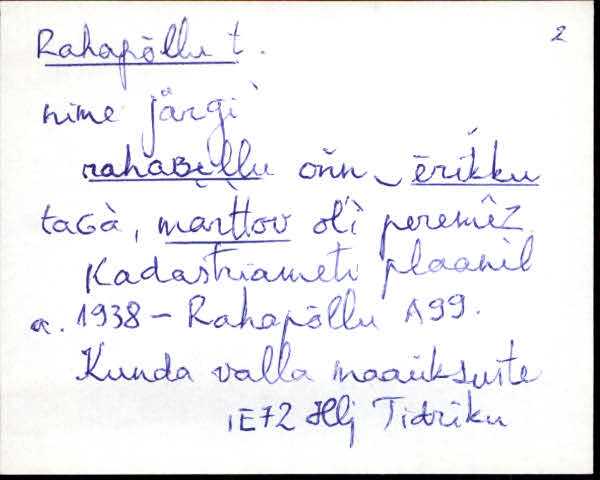 Rahapõllu t. 2
nime järgi
rahaʙellu oňn ērikku
taɢà, märttov oľi peremêz
Kadastriameti plaanil
a. 1938 – Rahapõllu A99.
Kunda valla maaüksuste
IE72 Hlj Tidriku